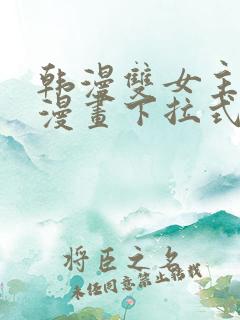 韩漫雙女主
漫畫下拉式
将臣之名
未经同意禁止转载